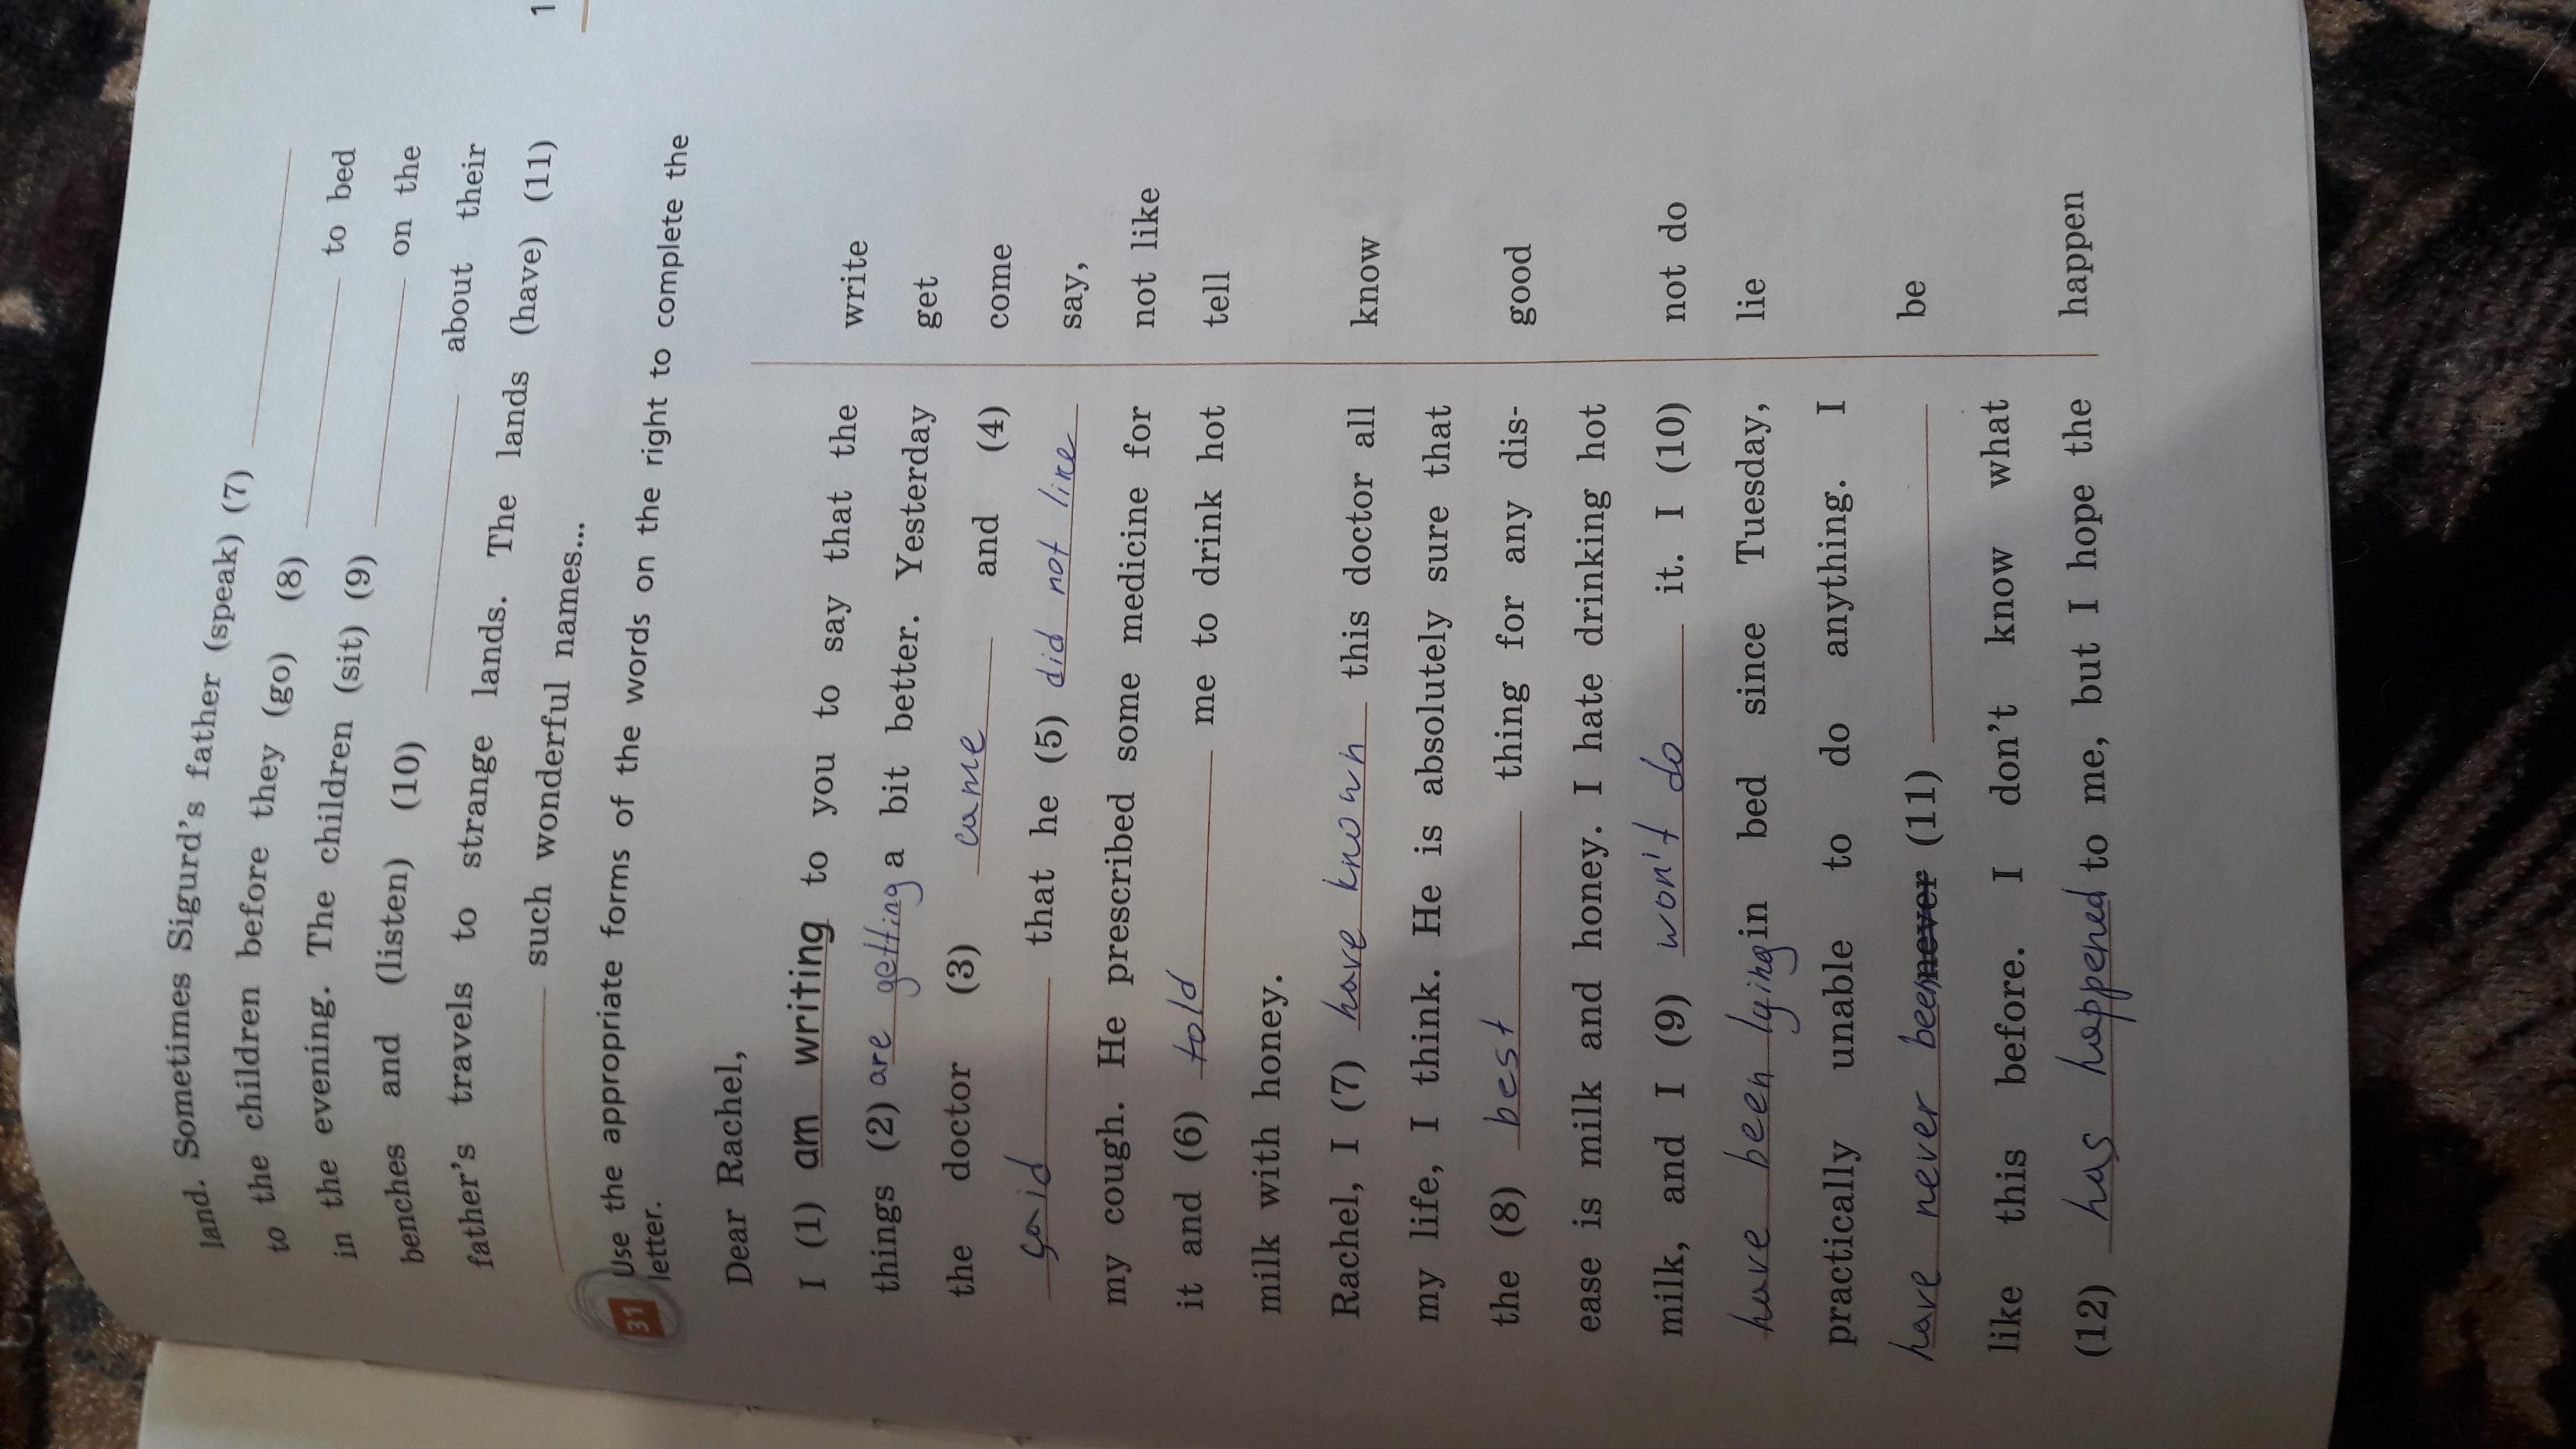 land. Sometimes Sigurd's father (speak) (7)
to the children before they (go) (8) to bed
in the evening. The children (sit) (9) on the
benches and (listen) (10) about their
father's travels to strange lands. The lands (have) (11)
such wonderful names...
1
31 Use the appropriate forms of the words on the right to complete the
letter.
Dear Rachel,
I (1) am writing to you to say that the write
things (2) are getting a bit better. Yesterday get
the doctor (3) came and (4) come
said that he (5) did not like say,
my cough. He prescribed some medicine for not like
it and (6) told me to drink hot tell
milk with honey.
Rachel, I (7) have known this doctor all know
my life, I think. He is absolutely sure that
the (8) best thing for any dis- good
ease is milk and honey. I hate drinking hot
milk, and I (9) won't do it. I (10) not do
have been lying in bed since Tuesday, lie
practically unable to do anything. I
have never been never (11) be
like this before. I don't know what
(12) has happened to me, but I hope the happen